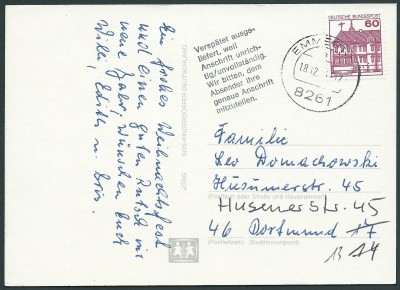 Ein frohes Weihnachtsfest
und einen guten Rutsch ins
neue Jahr, wünschen Euch
Willi, Edith u.
Verspätet ausge-
liefert, weil
Anschrift unrich-
tig/unvollständig.
Wir bitten, dem
Absender Ihre
genaue Anschrift
mitzuteilen.
DEUTSCHE BUNDESPOST
60
18.12.
8261
Familie
Leo Domachowski
Hüsumerstr. 45
(Straße und Hausnummer)
Husenerstr. 45
46 Dortmund 17
(Postleitzahl) (Bestimmungsort)
13 14